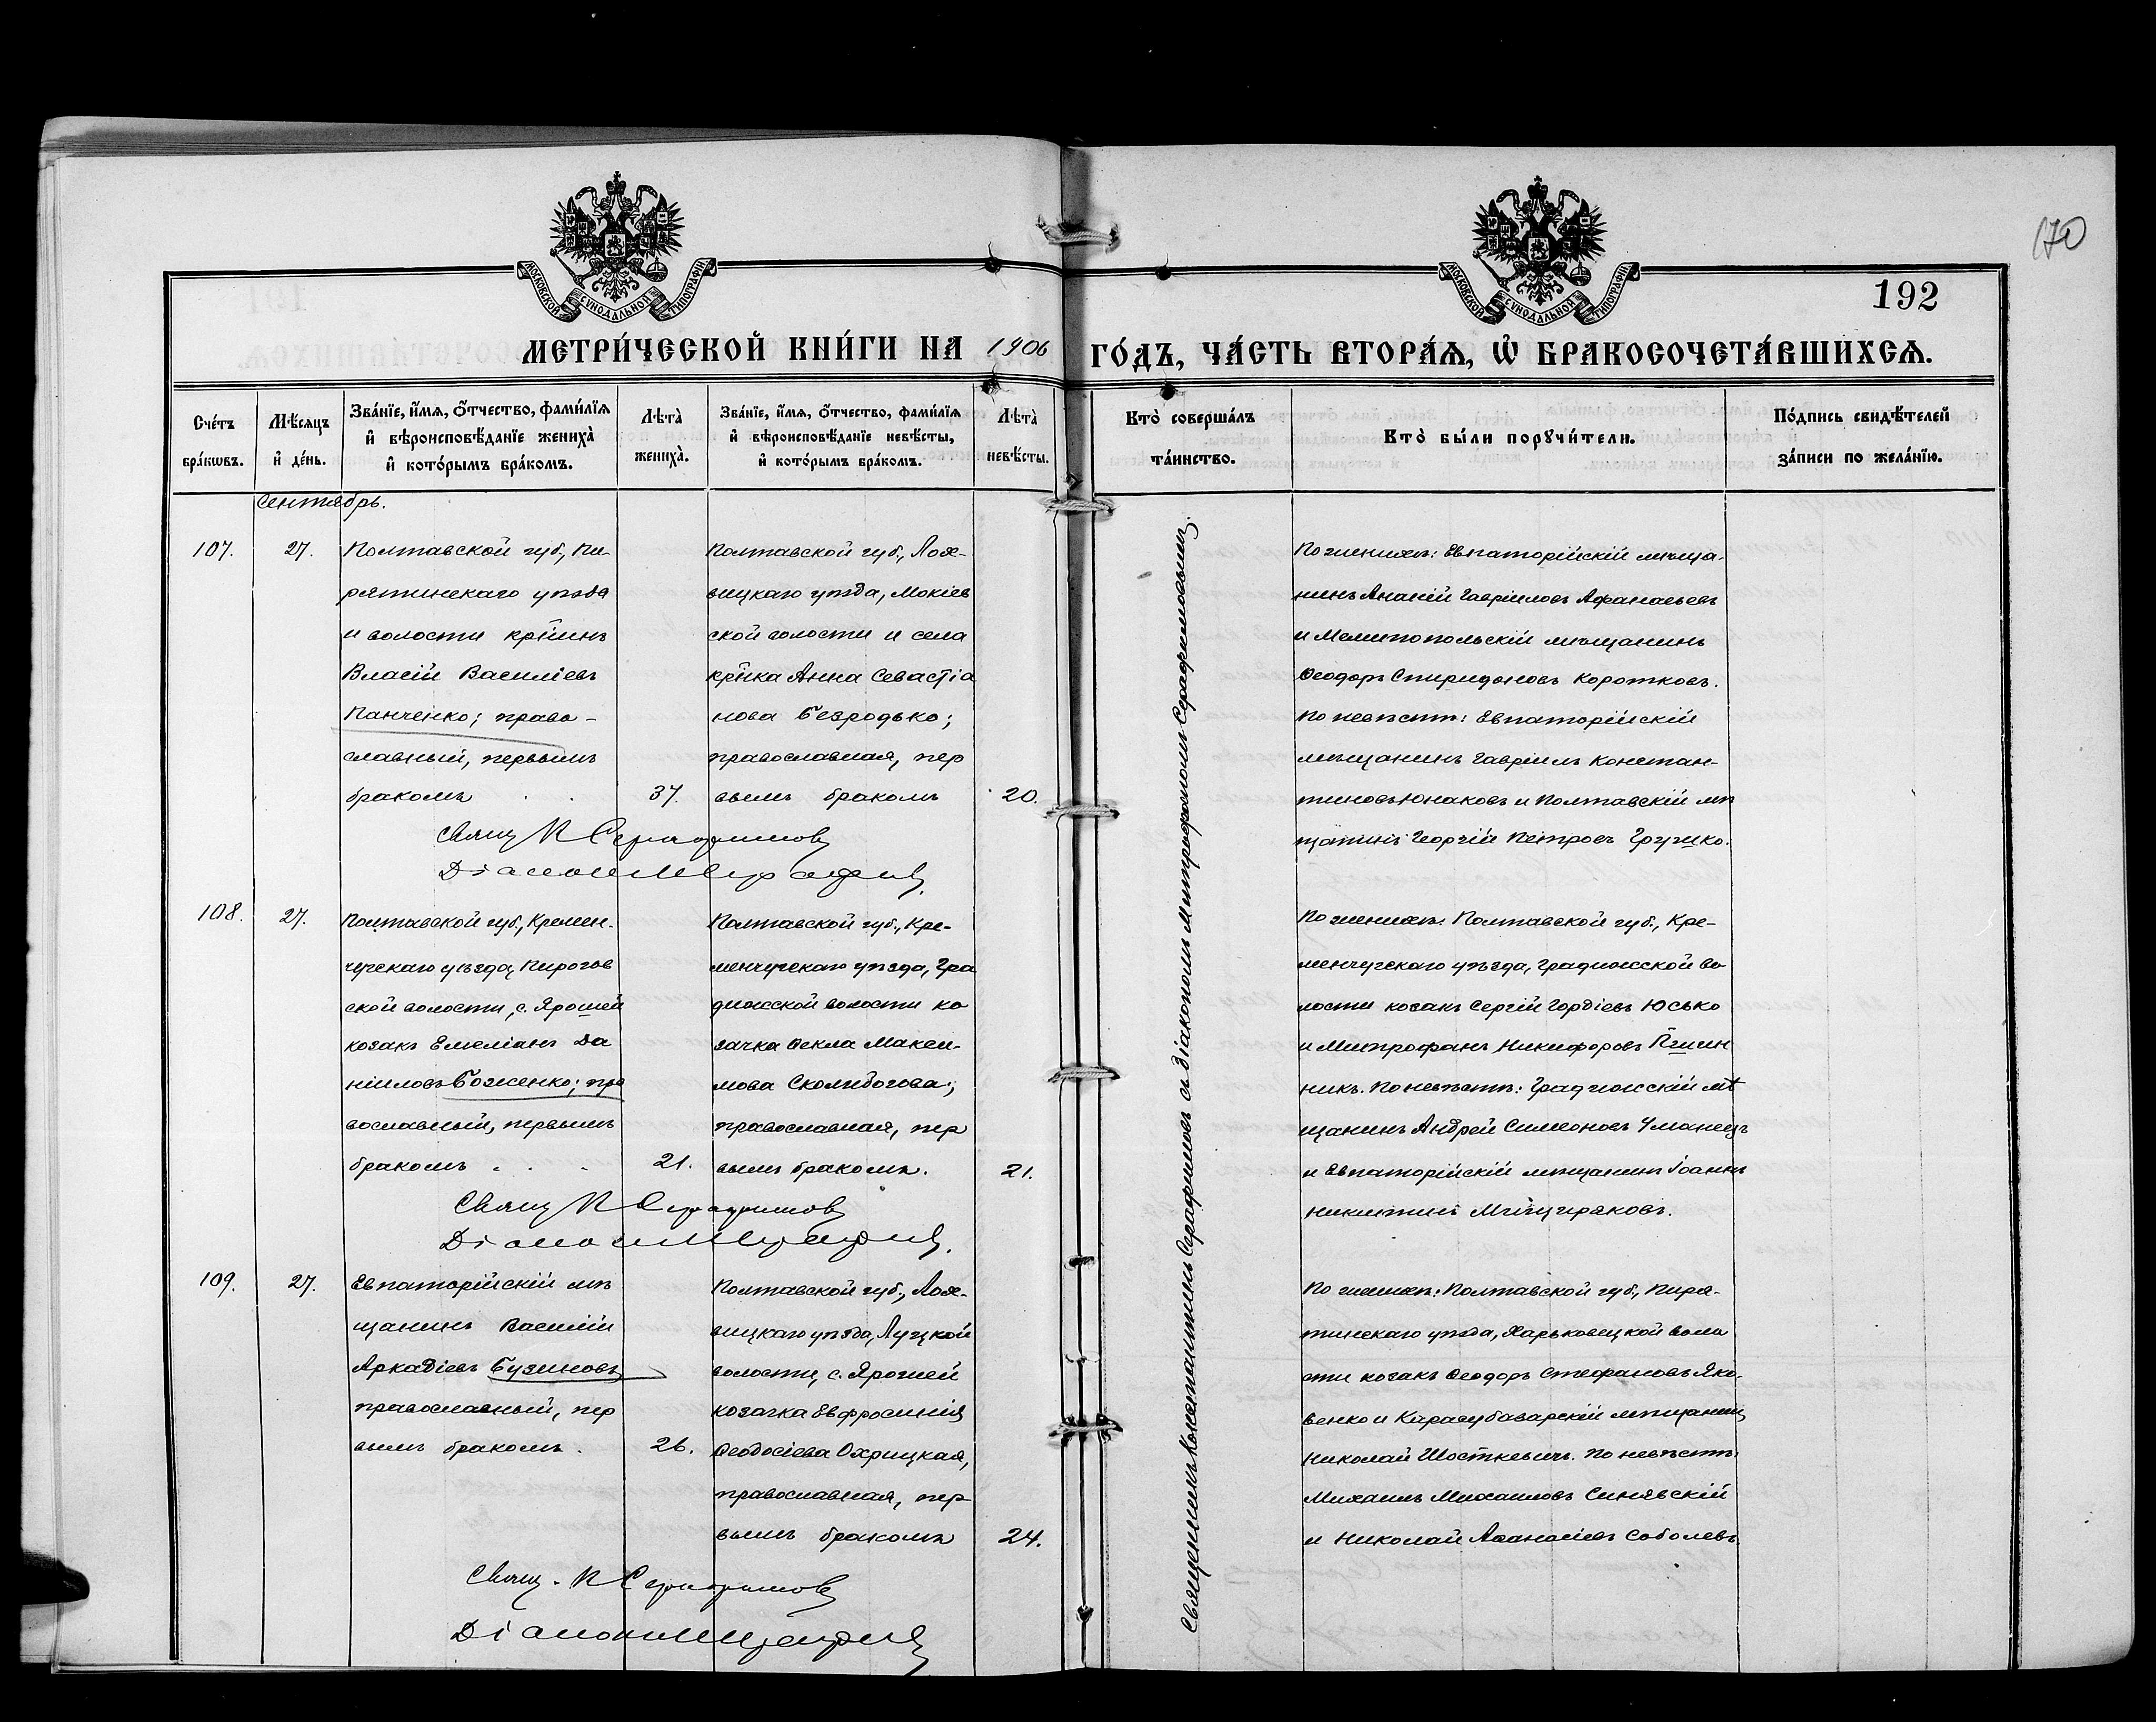 170
МОСКОВСКОЙ СѴНОДАЛЬНОЙ ТИПОГРАФІИ
МОСКОВСКОЙ СѴНОДАЛЬНОЙ ТИПОГРАФІИ
192
МЕТРИ́ЧЕСКОЙ КНИ́ГИ НА 1906 ГО́ДЪ, ЧА́СТЬ ВТОРА́Ѧ, Ѡ҆ БРАКОСОЧЕТА́ВШИХСѦ.
Сче́тъ
бра́кѡвъ.
Мѣ́сѧцъ
и҆ де́нь.
Зва́нїе, и҆́мѧ, ѻ҆́тчество, фами́лїѧ
и҆ вѣроисповѣ́данїе жениха̀
и҆ кото́рымъ бра́комъ.
Лѣта̀
жениха̀.
Зва́нїе, и҆́мѧ, ѻ҆́тчество, фами́лїѧ
и҆ вѣроисповѣ́данїе невѣ́сты,
и҆ кото́рымъ бра́комъ.
Лѣта̀
невѣ́сты.
Кто̀ соверша́лъ
та́инство.
Кто̀ бы́ли порꙋчи́тели.
По́дпись свидѣ́телей
за́писи по жела́нїю.
Сентябрь.
107.
27.
Полтавской губ., Пи-
рятинскаго уѣзда
и волости кр̃инъ
Власій Василіевъ
Панченко; право-
славный, первымъ
бракомъ
37.
Полтавской губ., Лох-
вицкаго уѣзда, Мокіев
ской волости и села
кр̃нка Анна Севастіа
нова Безродько;
православная, пер
вымъ бракомъ
20.
Священникъ Константинъ Серафимовъ съ діакономъ Митрофаномъ Серафимовымъ.
По женихѣ: Евпаторійскій мѣща-
нинъ Ананій Гавріиловъ Афанасьевъ
и Мелитопольскій мѣщанинъ
Ѳеодоръ Спиридоновъ Коротковъ.
По невѣстѣ: Евпаторійскій
мѣщанинъ Гавріилъ Констан-
тиновъ Юнаковъ и Полтавскій мѣ
щанинъ Георгій Петровъ Грушко.
Свящ К Серафимовъ
Діаконъ М Серафимовъ
108.
27.
Полтавской губ., Кремен-
чугскаго уѣзда, Пирогов
ской волости, с. Ярошей
козакъ Емеліанъ Да
ніиловъ Боженко; пра
вославный, первымъ
бракомъ
21.
Полтавской губ., Кре-
менчугскаго уѣзда, Гра
дижской волости ко
зачка Ѳекла Макси-
мова Сколибогова;
православная, пер
вымъ бракомъ.
21.
По женихѣ: Полтавской губ., Кре-
менчугскаго уѣзда, Градижской во
лости козакъ Сергій Гордіевъ Юсько
и Митрофанъ Никифоровъ Пшин
никъ. По невѣстѣ: Градижскій мѣ
щанинъ Андрей Симеоновъ Уманецъ
и Евпаторійскій мѣщанинъ Іоаннъ
Никитинъ
Свящ К Серафимовъ
Діаконъ М Серафимовъ
109.
27.
Евпаторійскій мѣ
щанинъ Василій
Аркадіевъ Бузиновъ
православный, пер
вымъ бракомъ.
26.
Полтавской губ., Лох-
вицкаго уѣзда, Луцкой
волости, с. Ярошей
козачка Евфросинія
Ѳеодосіева Охрицкая,
православная, пер
вымъ бракомъ
24.
По женихѣ: Полтавской губ., Пиря-
тинскаго уѣзда, Харьковецкой воло
сти козакъ Ѳеодоръ Стефановъ Яко-
венко и Карасубазарскій мѣщанинъ
Николай Шосткевичъ. По невѣстѣ:
Михаилъ Михаиловъ Синявскій
и Николай Аѳанасіевъ Соболевъ.
Свящ. К Серафимовъ
Діаконъ М Серафимовъ